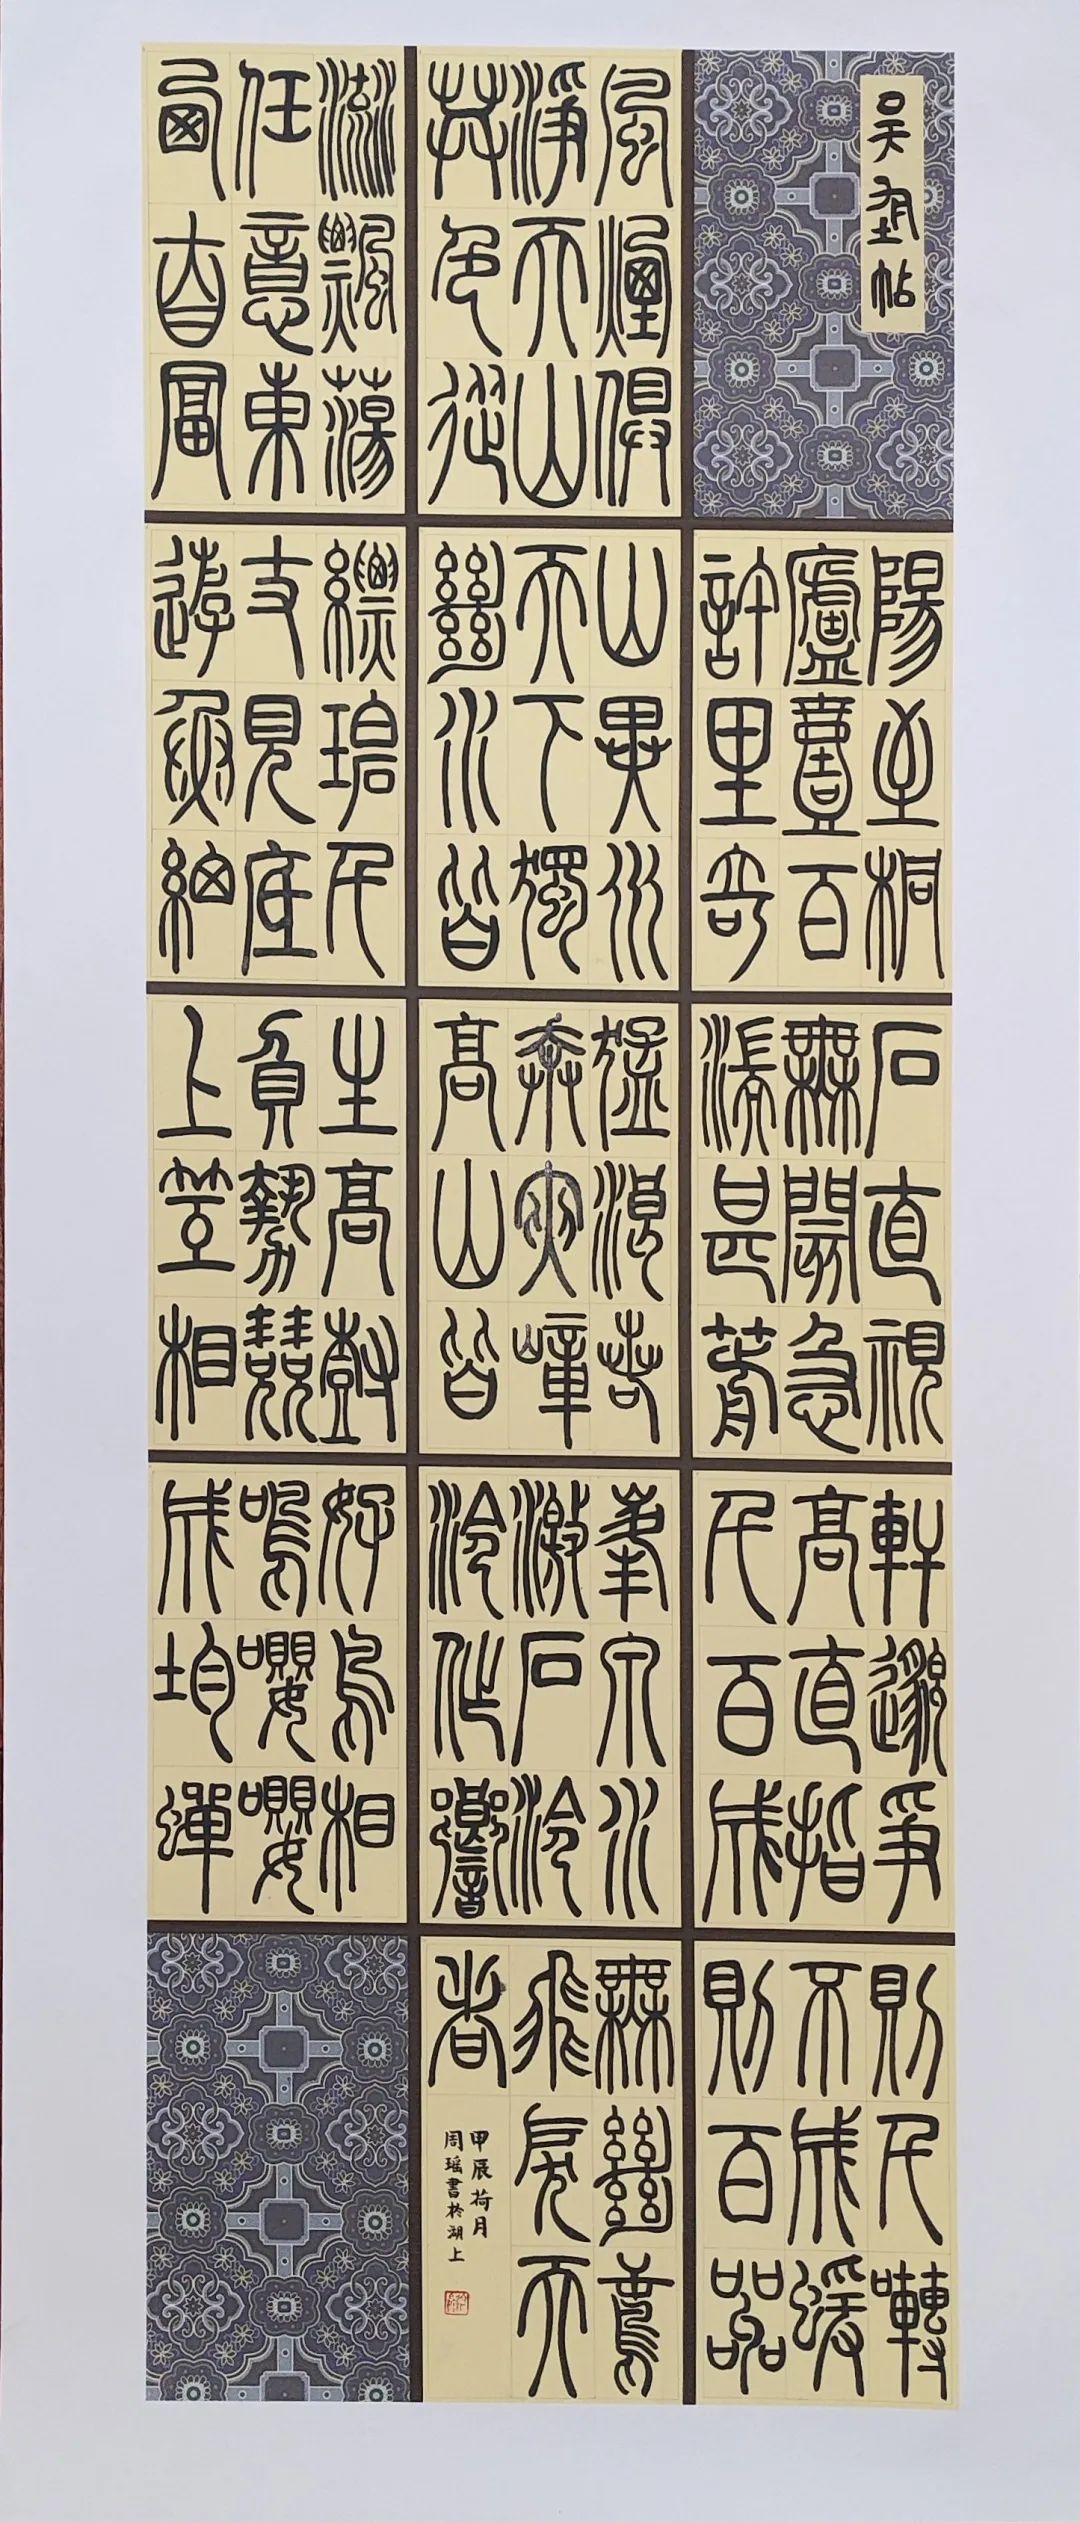 吳均帖
風煙俱
淨天山
共色從
流飄蕩
任意東
西自富
陽至桐
廬壹百
許里奇
山異水
天下獨
絕水皆
縹碧千
丈見底
游魚細
石直視
無閒急
湍甚箭
猛浪若
奔夾嶂
高山皆
生高樹
負勢競
上互相
軒邈爭
高直指
千百成
峯泉水
激石泠
泠作響
好鳥相
鳴嚶嚶
成韵蟬
則千囀
不成猨
則百嘂
無絕鳶
飛戾天
者
甲辰荷月
周瑶書於湖上